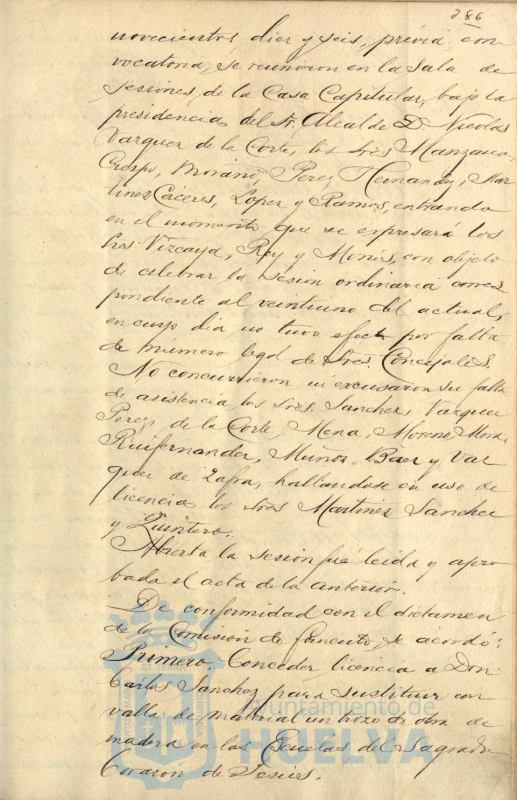 286
novecientos diez y seis, prévia con
vocatoria, se reunieron en la Sala de
Sesiones, de la Casa Capitular, bajo la
presidencia del Sr. Alcalde D. Nicolas
Vazquez de la Corte, los Sres Manzano,
Crespo, Moraño, Perez Hernandez, Mar
tinez Cáceres, Lopez y Ramos, entrando
en el momento que se expresará los
Sres Vizcaya, Rey y Minés, con objeto
de celebrar la sesion ordinaria corres
pondiente al veintiuno del actual,
en cuyo dia no tuvo efecto por falta
de número legal de Sres. Concejales.
No concurrieron ni excusaron su falta
de asistencia los Sres. Sanchez, Vazquez
Perez, de la Corte, Mena, Moreno, Mora,
Ruifernandez, Muñoz, Baez y Vaz
quez de Zafra, hallandose en uso de
licencia los Sres Martinez Sanchez
y Quintero.
Abierta la sesion fué leida y apro
bada el acta de la anterior.
De conformidad con el dictamen
de la Comision de fomento, se acordó:
Primero. Conceder licencia a Don
Cárlos Sanchez para sustituir con
valla de material un trozo de obra de
madera en las Escuelas del Sagrado
Corazon de Jesús.
Ayuntamiento de
HUELVA